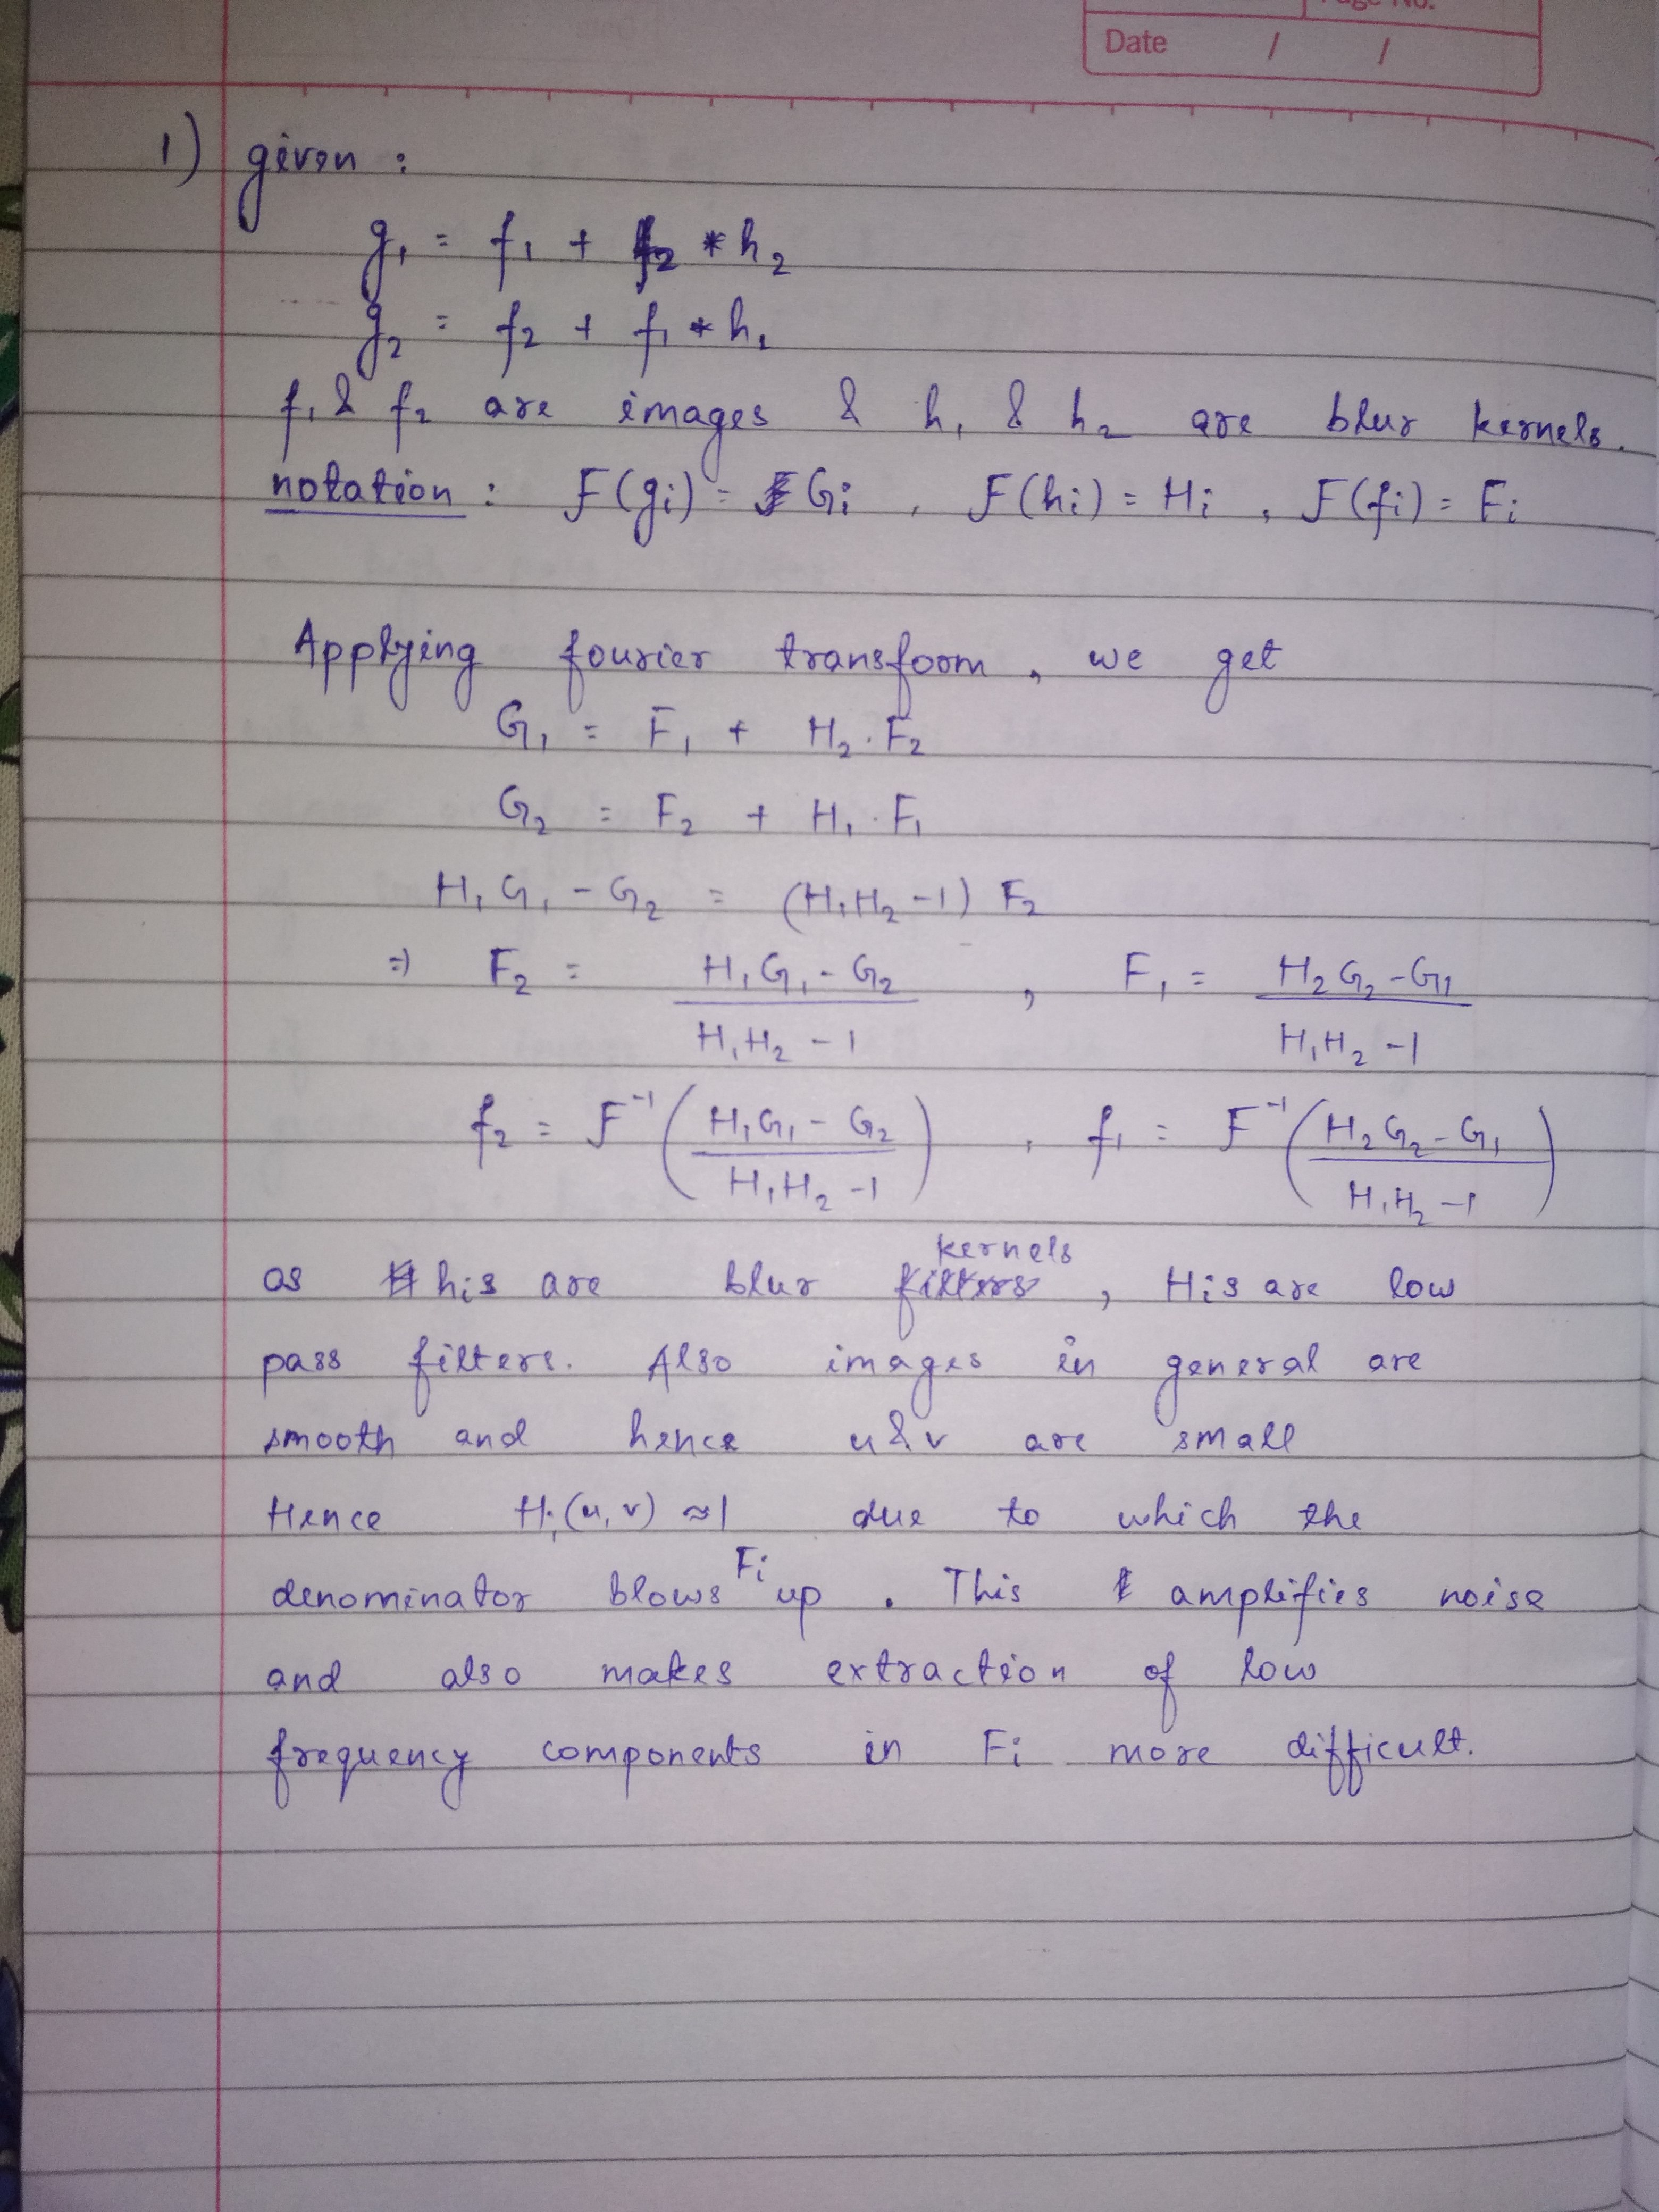 Page No.
Date / /
1) given :
g₁ = f₁ + f₂ * h₂
g₂ = f₂ + f₁ * h₁
f₁ & f₂ are images & h₁ & h₂ are blur kernels.
notation : F(gi) = Gi , F(hi) = Hi , F(fi) = Fi
Applying fourier transform, we get
G₁ = F₁ + H₂ . F₂
G₂ = F₂ + H₁ . F₁
H₁G₁ - G₂ = (H₁H₂ - 1) F₂
=) F₂ = (H₁G₁ - G₂) / (H₁H₂ - 1) , F₁ = (H₂G₂ - G₁) / (H₁H₂ - 1)
f₂ = F⁻¹ ( (H₁G₁ - G₂) / (H₁H₂ - 1) ) , f₁ = F⁻¹ ( (H₂G₂ - G₁) / (H₁H₂ - 1) )
as his are blur kernels , His are low
pass filters. Also images in general are
smooth and hence u & v are small
Hence Hi(u, v) ≈ 1 due to which the
denominator blows Fi up . This amplifies noise
and also makes extraction of low
frequency components in Fi more difficult.